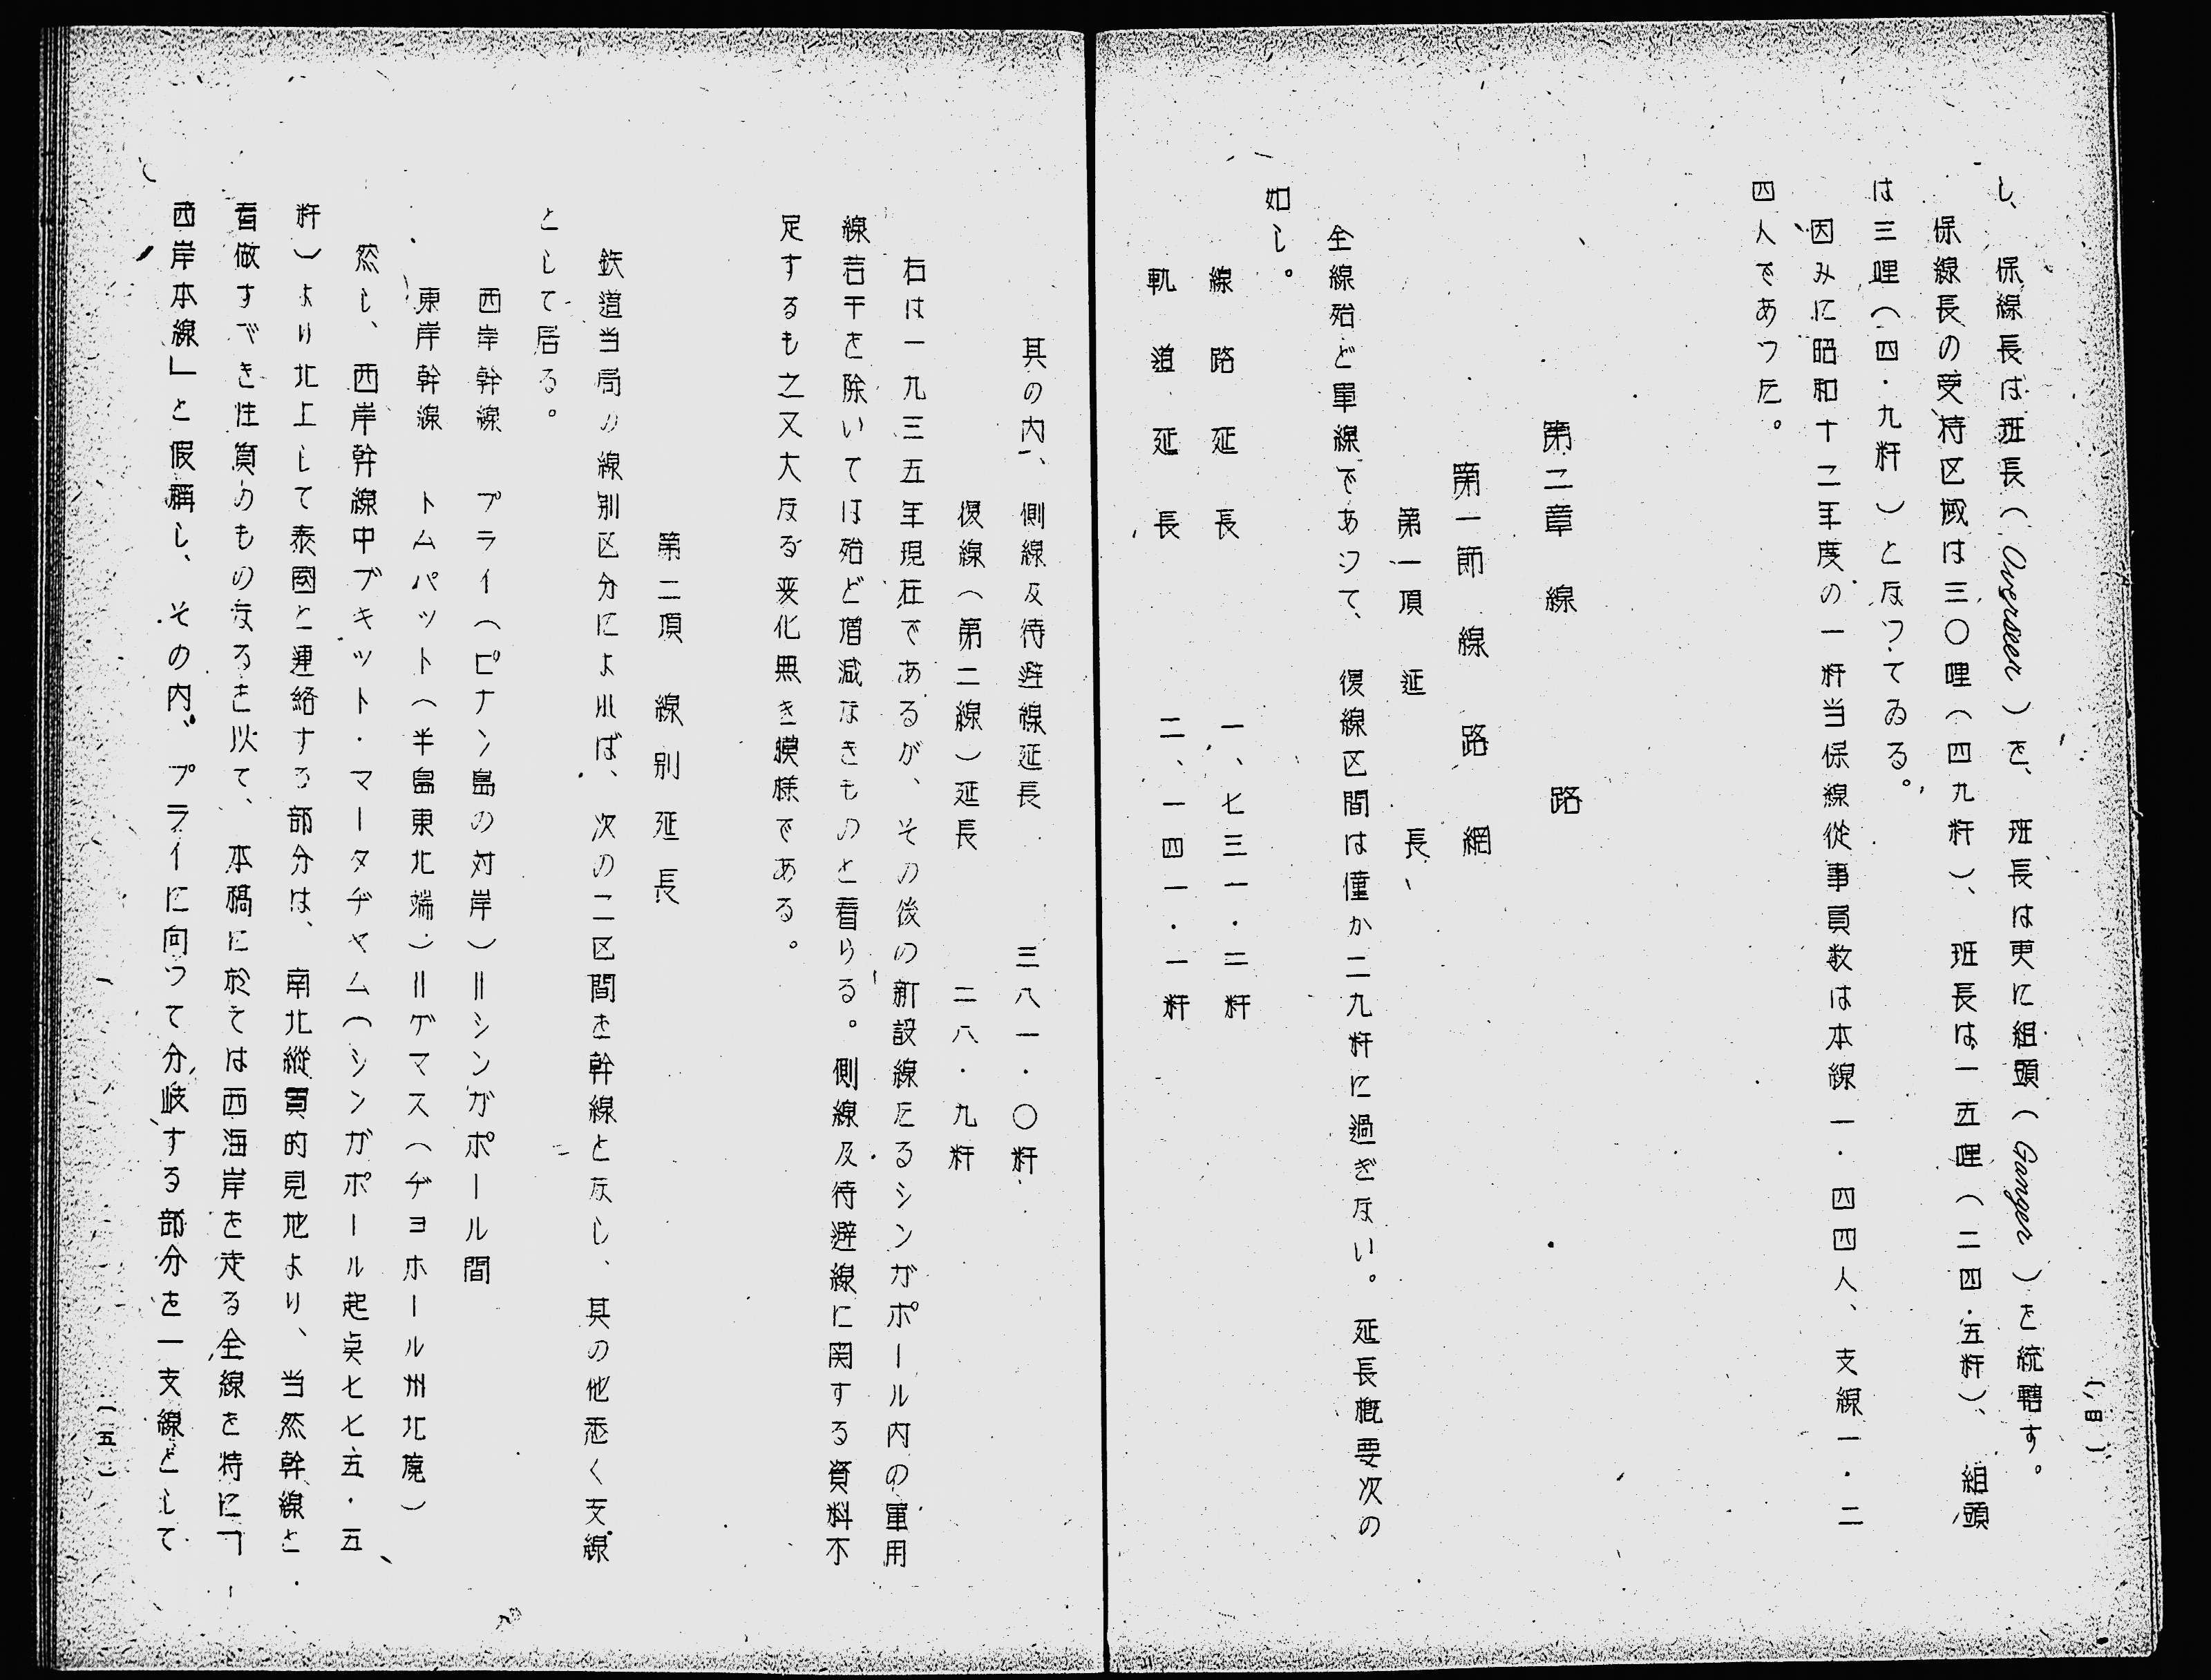 (四)
し、保線長は班長(Overseer)を、班長は更に組頭(Ganger)を統轄す。
保線長の受持区域は三〇哩(四九粁)、班長は一五哩(二四・五粁)、組頭
は三哩(四・九粁)となつてゐる。
因みに昭和十二年度の一粁当保線従事員数は本線一・四四人、支線一・二
四人であつた。
第二章 線路
第一節 線路網
第一項 延長
全線殆ど単線であつて、復線区間は僅か二九粁に過ぎない。延長概要次の
如し。
線路延長 一、七三一・二粁
軌道延長 二、一四一・一粁
其の内、側線及待避線延長 三八一・〇粁
復線(第二線)延長 二八・九粁
右は一九三五年現在であるが、その後の新設線たるシンガポール内の軍用
線若干を除いては殆ど増減なきものと看らる。側線及待避線に関する資料不
足するも之又大なる変化無き模様である。
第二項 線別延長
鉄道当局の線別区分によれば、次の二区間を幹線となし、其の他悉く支線
として居る。
西岸幹線 プライ(ピナン島の対岸)=シンガポール間
東岸幹線 トムパット(半島東北端)=ゲマス(ヂョホール州北境)
然し、西岸幹線中ブキット・マータヂャム(シンガポール起点七七五・五
粁)より北上して泰国と連絡する部分は、南北縦貫的見地より、当然幹線と
看做すべき性質のものなるを以て、本稿に於ては西海岸を走る全線を特に「
西岸本線」と仮称し、その内、プライに向つて分岐する部分を一支線として
(五)